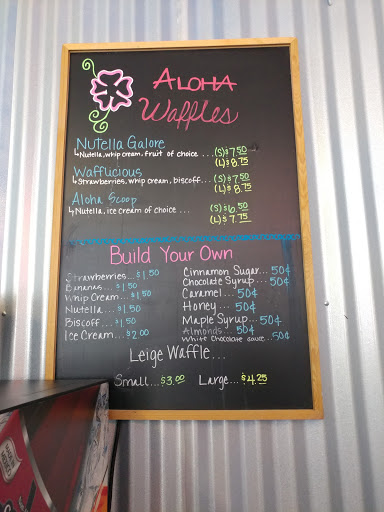 ALOHA
Waffles
Nutella Galore
Nutella, whip cream, fruit of choice... (S) $7.50
(L) $8.75
Wafflicious
Strawberries, whip cream, biscoff... (S) $7.50
(L) $8.75
Aloha Scoop
Nutella, ice cream of choice... (S) $6.50
(L) $7.75
Build Your Own
Strawberries... $1.50
Bananas... $1.50
Whip Cream... $1.50
Nutella... $1.50
Biscoff... $1.50
Ice Cream... $2.00
Cinnamon Sugar... 50¢
Chocolate Syrup... 50¢
Caramel... 50¢
Honey... 50¢
Maple Syrup... 50¢
Almonds... 50¢
White Chocolate sauce... 50¢
Leige Waffle...
Small... $3.00 Large... $4.25